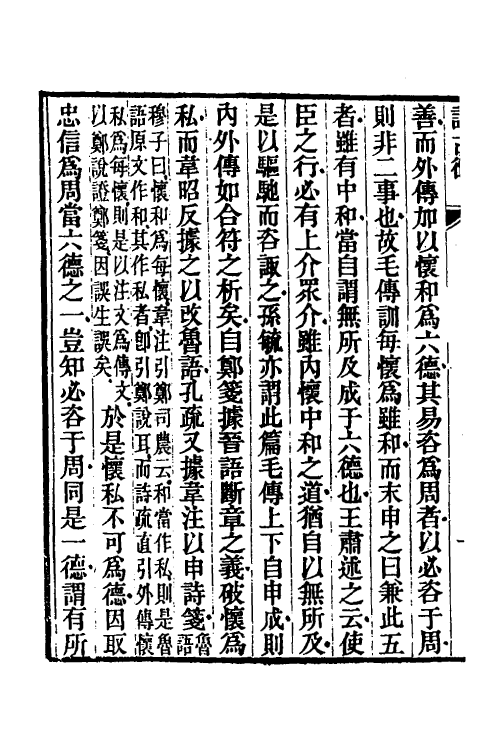 善而外傳加以懷和爲六德其易咨爲周者以必咨于周
則非二事也故毛傳訓每懷爲雖和而末申之曰兼此五
者雖有中和當自謂無所及成于六德也王肅述之云使
臣之行必有上介眾介雖內懷中和之道猶自以無所及
是以驅馳而咨諏之孫毓亦謂此篇毛傳上下自申成則
內外傳如合符之析矣自鄭箋據晉語斷章之義破懷爲
私而韋昭反據之以改魯語孔疏又據韋注以申詩箋魯語
穆子曰懷和爲每懷韋注引鄭司農云和當作私則是魯
語原文作和其作私者卽引鄭說耳而詩疏直引外傳懷
私爲每懷則是以注文爲傳文
以鄭說證鄭箋因誤生誤矣
於是懷私不可爲德因取
忠信爲周當六德之一豈知必咨于周同是一德謂有所